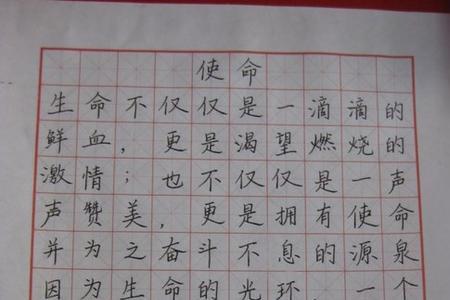 使命
生命不仅仅是一滴滴的
鲜血,更是渴望燃烧的
激情;也不仅仅是一声
声赞美,更是拥有使命
并为之奋斗不息的源泉
因为生命的光环,一个